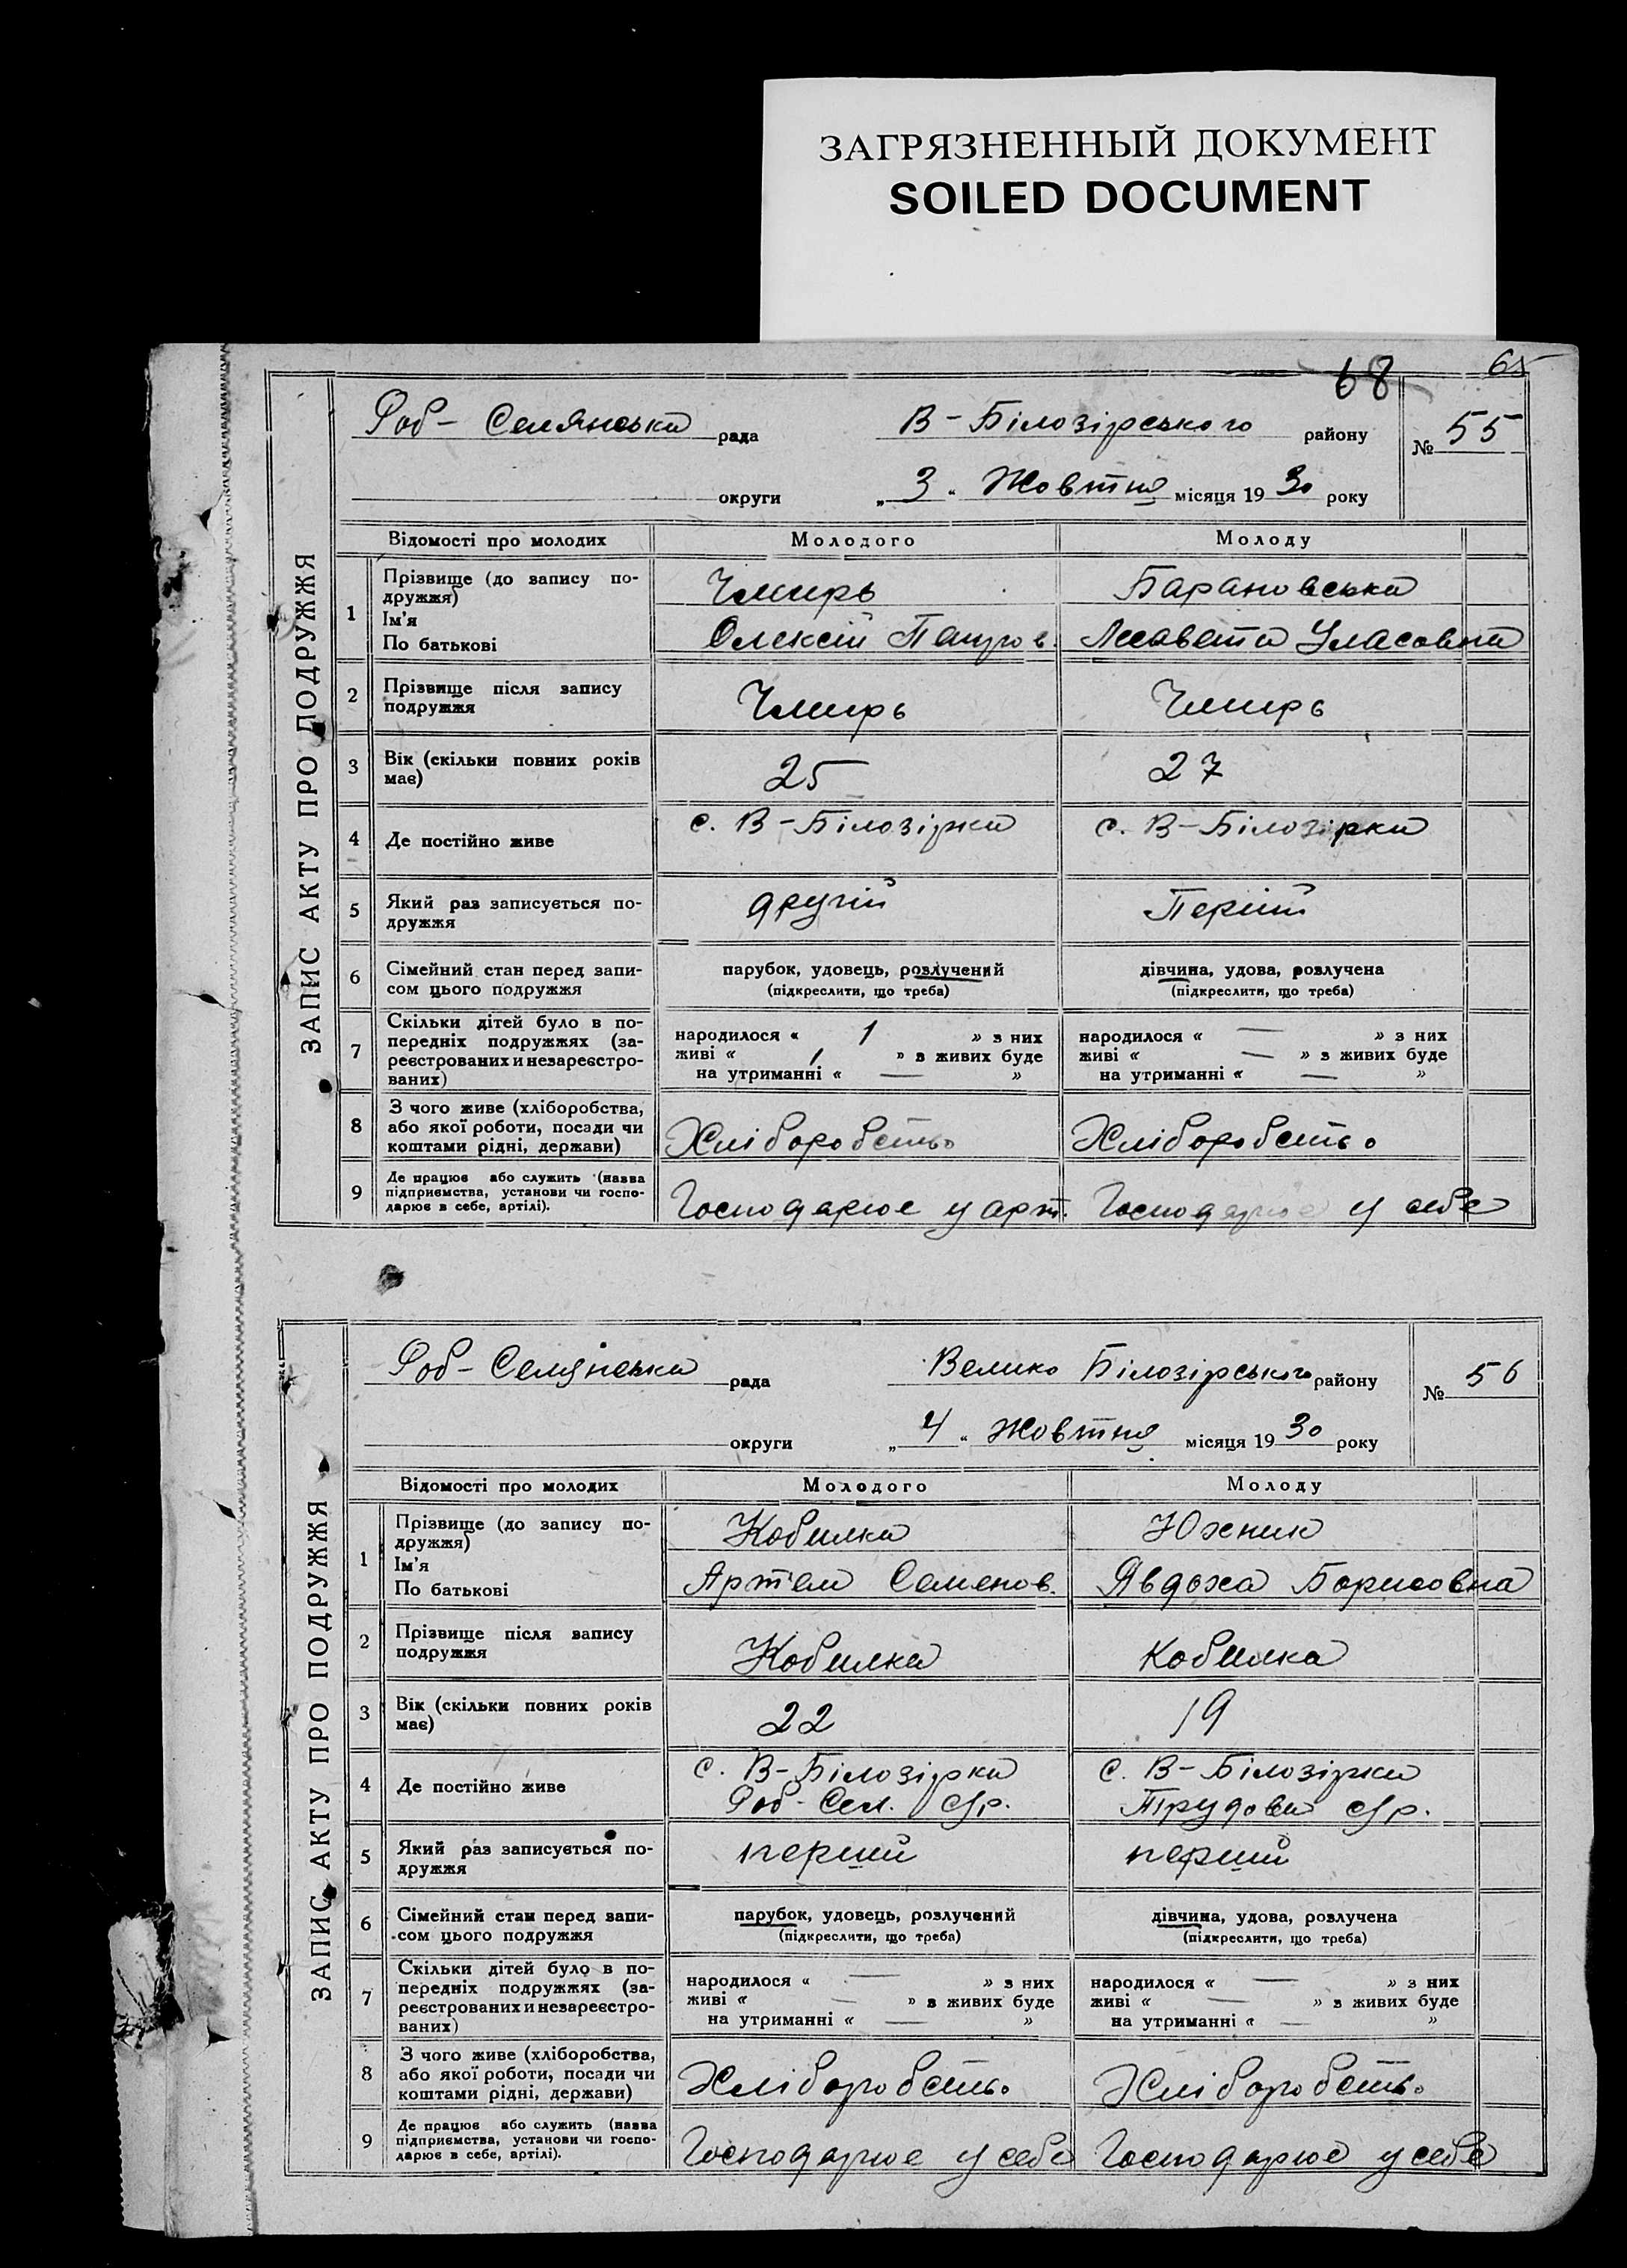 ЗАГРЯЗНЕННЫЙ ДОКУМЕНТ
SOILED DOCUMENT
65
68
ЗАПИС АКТУ ПРО ПОДРУЖЖЯ
Роб- Селянська рада В-Білозірського району № 55
округи „3“ Жовтня місяця 1930 року
Відомості про молодих Молодого Молоду
1 Прізвище (до запису по-
дружжя) Чмирь Барановська
Ім'я
По батькові Олексій Лисавета Уласовна
2 Прізвище після запису
подружжя Чмирь Чмирь
3 Вік (скільки повних років
має) 25 27
4 Де постійно живе с. В-Білозірка с. В-Білозірка
5 Який раз записується по-
дружжя другій Перший
6 Сімейний стан перед запи-
сом цього подружжя парубок, удовець, розлучений дівчина, удова, розлучена
(підкреслити, що треба) (підкреслити, що треба)
7 Скільки дітей було в по-
передніх подружжях (за-
реєстрованих и незареєстро-
ваних)
народилося « 1 » з них народилося « — » з них
живі « 1 » з живих буде живі « — » з живих буде
на утриманні « — » на утриманні « — »
8 З чого живе (хліборобства,
або якої роботи, посади чи
коштами рідні, держави) Хліборобство Хліборобство
9 Де працює або служить (назва
підприємства, установи чи госпо-
дарює в себе, артілі). Господарює у арт. Господарює у себе
ЗАПИС АКТУ ПРО ПОДРУЖЖЯ
Роб- Селянська рада Велико Білозірського району № 56
округи „4“ Жовтня місяця 1930 року
Відомості про молодих Молодого Молоду
1 Прізвище (до запису по-
дружжя) Кобилка Юхник
Ім'я
По батькові Артем Семенов. Явдоха Борисовна
2 Прізвище після запису
подружжя Кобилка Кобилка
3 Вік (скільки повних років
має) 22 19
4 Де постійно живе с. В-Білозірка с. В-Білозірка
Роб-Сел. с/р. Трудова с/р.
5 Який раз записується по-
дружжя перший перший
6 Сімейний стан перед запи-
сом цього подружжя парубок, удовець, розлучений дівчина, удова, розлучена
(підкреслити, що треба) (підкреслити, що треба)
7 Скільки дітей було в по-
передніх подружжях (за-
реєстрованих и незареєстро-
ваних)
народилося « — » з них народилося « — » з них
живі « — » з живих буде живі « — » з живих буде
на утриманні « — » на утриманні « — »
8 З чого живе (хліборобства,
або якої роботи, посади чи
коштами рідні, держави) Хліборобство Хліборобство
9 Де працює або служить (назва
підприємства, установи чи госпо-
дарює в себе, артілі). Господарює у себе Господарює у себе